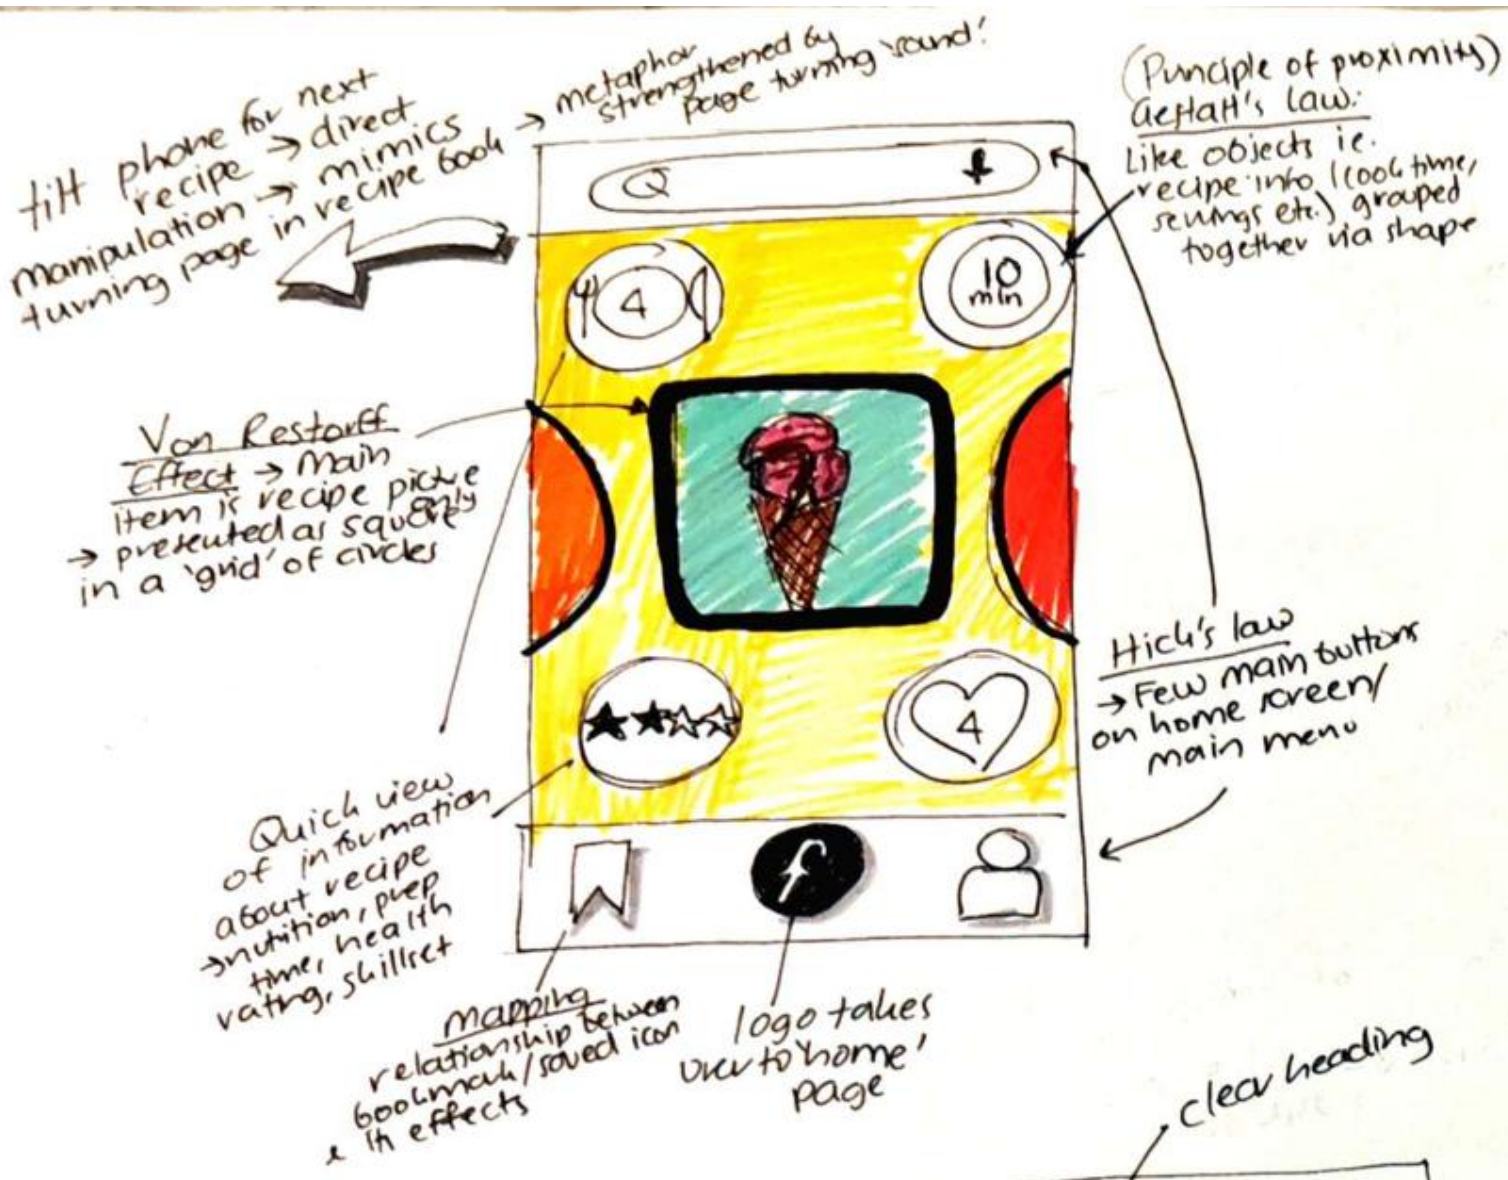 tilt phone for next
recipe → direct
manipulation → mimics
turning page in recipe book
→ metaphor
strengthened by
page turning 'sound'!
(Principle of proximity)
Gestalt's law:
Like objects ie.
recipe info (cook time,
servings etc.) grouped
together via shape
4
10
min
Von Restorff
Effect → Main
item is recipe picture
→ presented as square only
in a 'grid' of circles
Hick's law
→ Few main buttons
on home screen/
main menu
4
Quick view
of information
about recipe
→ nutrition, prep
time, health
rating, skillset
f
mapping
relationship between
bookmark/saved icon
& its effects
logo takes
user to 'home'
page
clear heading